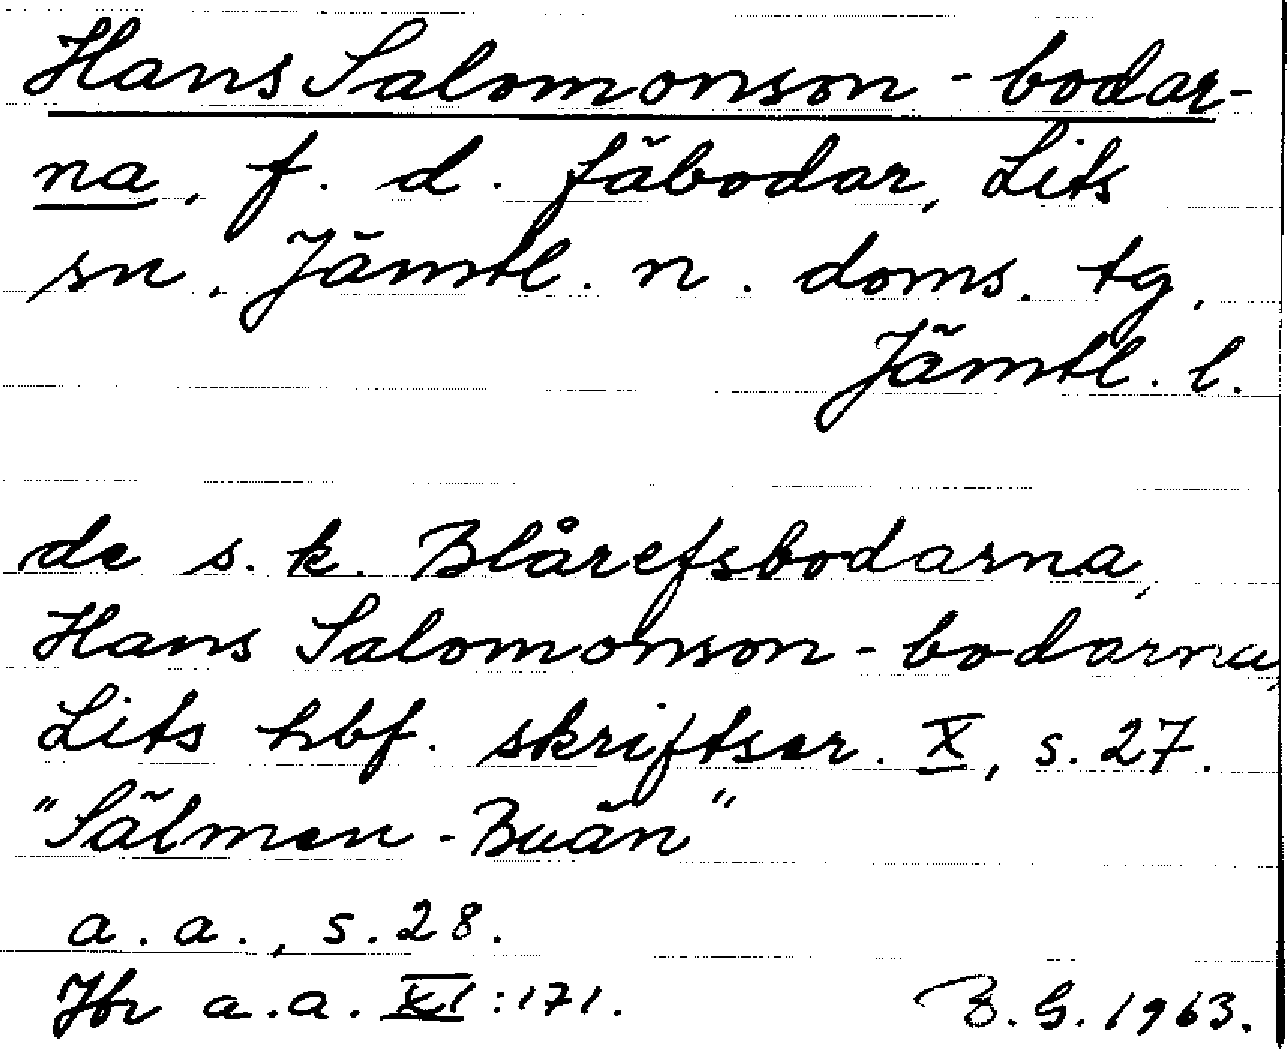 Hans Salomonson-bodar-
na, f. d. fäbodar, Lits
sn. Jämtl. n. doms. tg.
Jämtl. l.
de s. k. Blårefsbodarna,
Hans Salomonson-bodarna,
Lits hbf. skriftser. X, s. 27.
"Sälmen-Buän"
a. a., s. 28.
Jfr a. a. XI:171.
B. G. 1963.